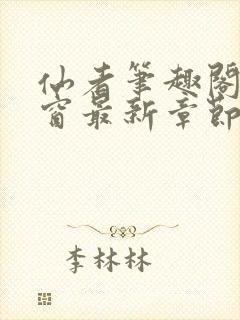 仙者筆趣閣
窗最新章節
李林林